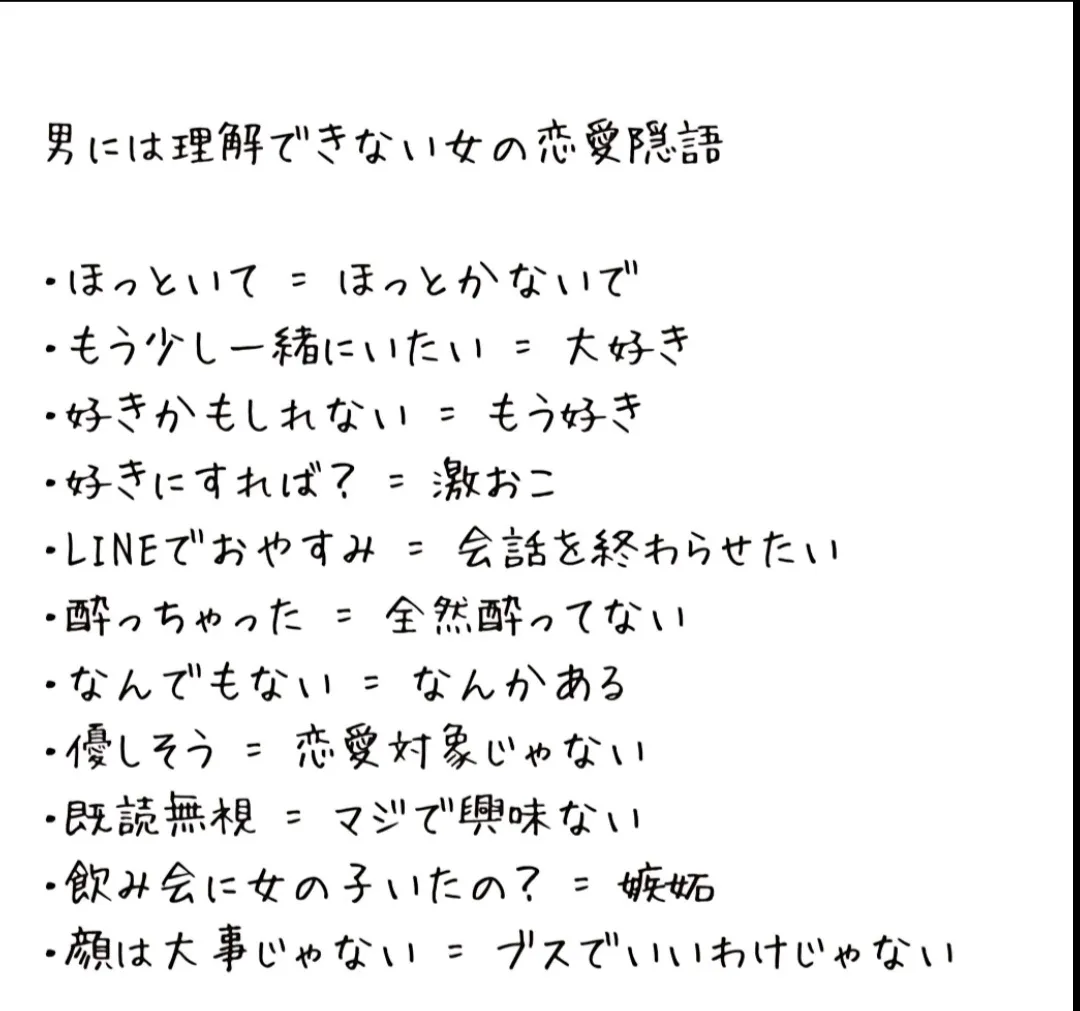 男には理解できない女の恋愛隠語
・ほっといて = ほっとかないで
・もう少し一緒にいたい = 大好き
・好きかもしれない = もう好き
・好きにすれば? = 激おこ
・LINEでおやすみ = 会話を終わらせたい
・酔っちゃった = 全然酔ってない
・なんでもない = なんかある
・優しそう = 恋愛対象じゃない
・既読無視 = マジで興味ない
・飲み会に女の子いたの? = 嫉妬
・顔は大事じゃない = ブスでいいわけじゃない